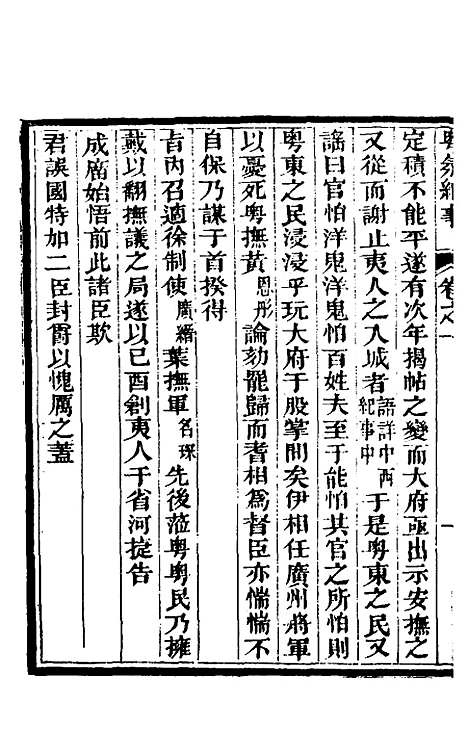 粵氛紀事 卷之一
定積不能平遂有次年揭帖之變而大府亟出示安撫之
又從而謝止夷人之入城者語詳中西紀事中于是粵東之民又
謡曰官怕洋鬼洋鬼怕百姓夫至于能怕其官之所怕則
粵東之民浸浸乎玩大府于股掌間矣伊相任廣州將軍
以憂死粵撫黃恩彤論劾罷歸而耆相爲督臣亦惴惴不
自保乃謀于首揆得
旨內召適徐制使廣縉葉撫軍名琛先後蒞粵粵民乃擁
戴以翻撫議之局遂以已酉創夷人于省河掟告
成廟始悟前此諸臣欺
君誤國特加二臣封爵以愧厲之蓋